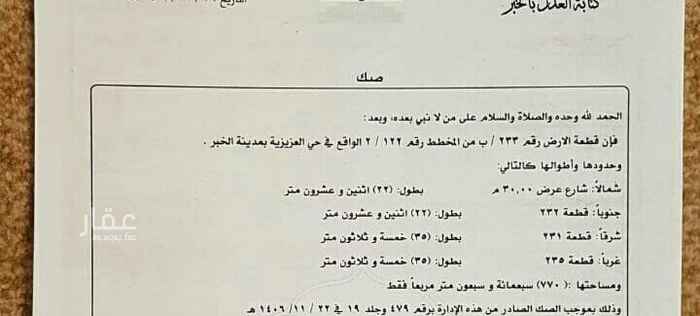 كتابة العدل بالخبر
التاريخ
صك
الحمد لله وحده والصلاة والسلام على من لا نبي بعده، وبعد:
فإن قطعة الارض رقم ٢٣٣ / ب من المخطط رقم ١٢٢ / ٢ الواقع في حي العزيزية بمدينة الخبر .
وحدودها وأطوالها كالتالي:
شمالاً: شارع عرض ٣٠,٠٠ م بطول: (٢٢) اثنين و عشرون متر
جنوباً: قطعة ٢٣٢ بطول: (٢٢) اثنين و عشرون متر
شرقاً: قطعة ٢٣١ بطول: (٣٥) خمسة و ثلاثون متر
غرباً: قطعة ٢٣٥ بطول: (٣٥) خمسة و ثلاثون متر
ومساحتها :( ٧٧٠) سبعمائة و سبعون متر مربعاً فقط
وذلك بموجب الصك الصادر من هذه الإدارة برقم ٤٧٩ وجلد ١٩ في ٢٢ / ١١ / ١٤٠٦ هـ
عقار